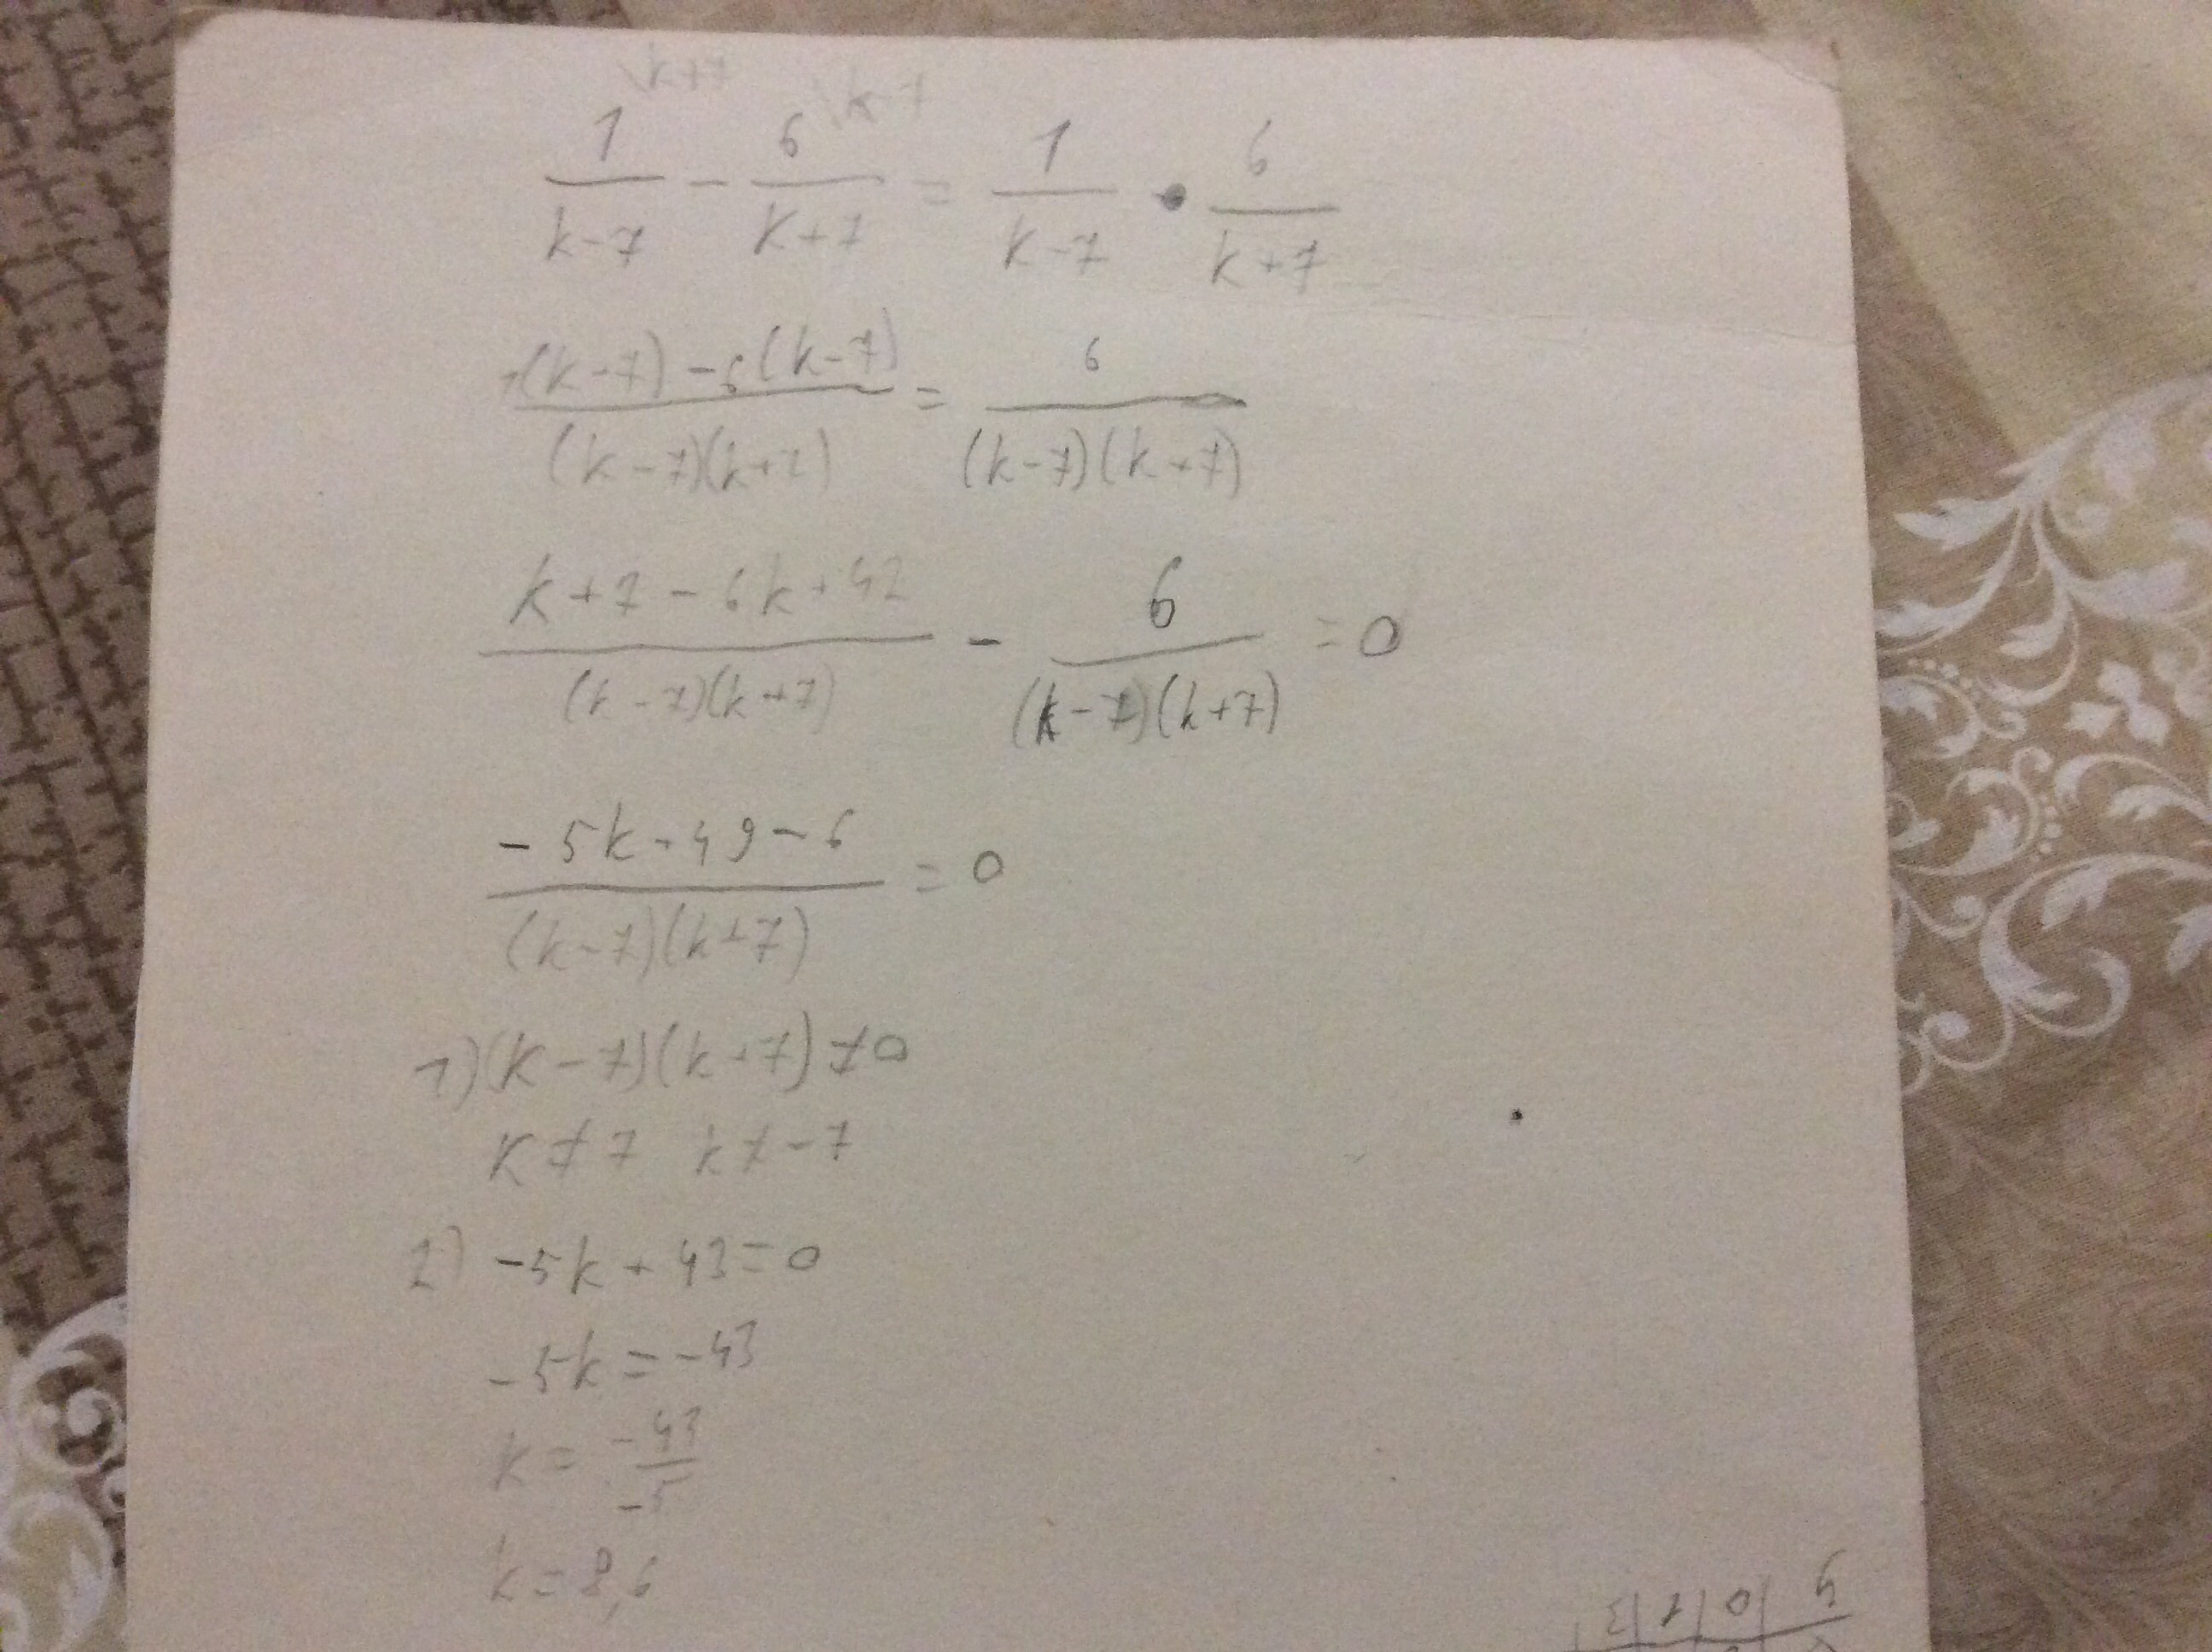 \k+7 \k-7
1/(k-7) - 6/(k+7) = 1/(k-7) • 6/(k+7)
(1(k-7) - 6(k-7))/((k-7)(k+7)) = 6/((k-7)(k+7))
(k+7-6k+42)/((k-7)(k+7)) - 6/((k-7)(k+7)) = 0
(-5k+49-6)/((k-7)(k+7)) = 0
1) (k-7)(k+7) ≠ 0
k ≠ 7 k ≠ -7
2) -5k + 43 = 0
-5k = -43
k = -43/-5
k = 8,6
y | 0 | 1 | 3 |